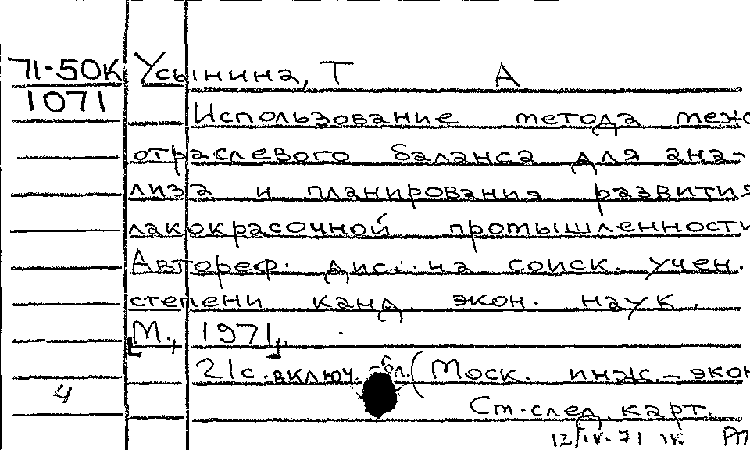 71-50К Усынина, Т А
1071
Использование метода меж
отраслевого баланса для ана-
лиза и планирования развития
лакокрасочной промышленности
Автореф. дис. на соиск. учен.
степени канд. экон. наук.
[М., 1971].
21с. включ. обл. (Моск. инж.-экон
4
См. след. карт.
12/IV-71